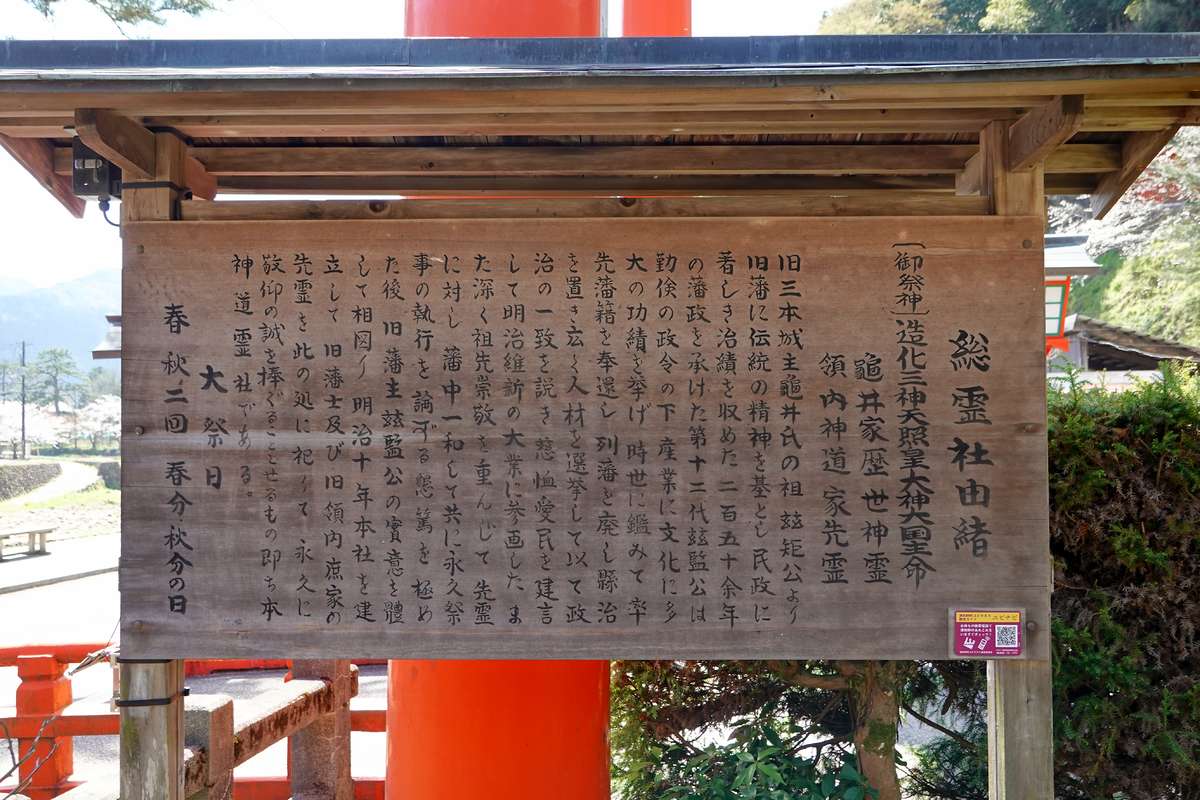 総霊社由緒
〔御祭神〕造化三神天照皇大神大国主命
龜井家歴世神霊
領内神道家先霊
旧三本城主龜井氏の祖 茲矩公より
旧藩に伝統の精神を基とし 民政に
著しき治績を収めた 二百五十余年
の藩政を承けた第十二代茲監公は
勤倹の政令の下 産業に文化に多
大の功績を挙げ 時世に鑑みて 率
先藩籍を奉還し 列藩を廃し縣治
を置き広く人材を選挙して以て政
治の一致を説き 慈恤愛民を建言
して明治維新の大業に参画した ま
た深く祖先崇敬を重んじて 先霊
に対し 藩中一和して共に永久祭
事の執行を 論ずる懇篤を 極め
た後 旧藩主茲監公の實意を體
して相図り 明治十年本社を建
立して 旧藩士及び旧領内庶家の
先霊を此の処に祀りて 永久に
敬仰の誠を捧ぐることせるもの即ち本
神道霊社である。
大祭日
春秋二回 春分・秋分の日